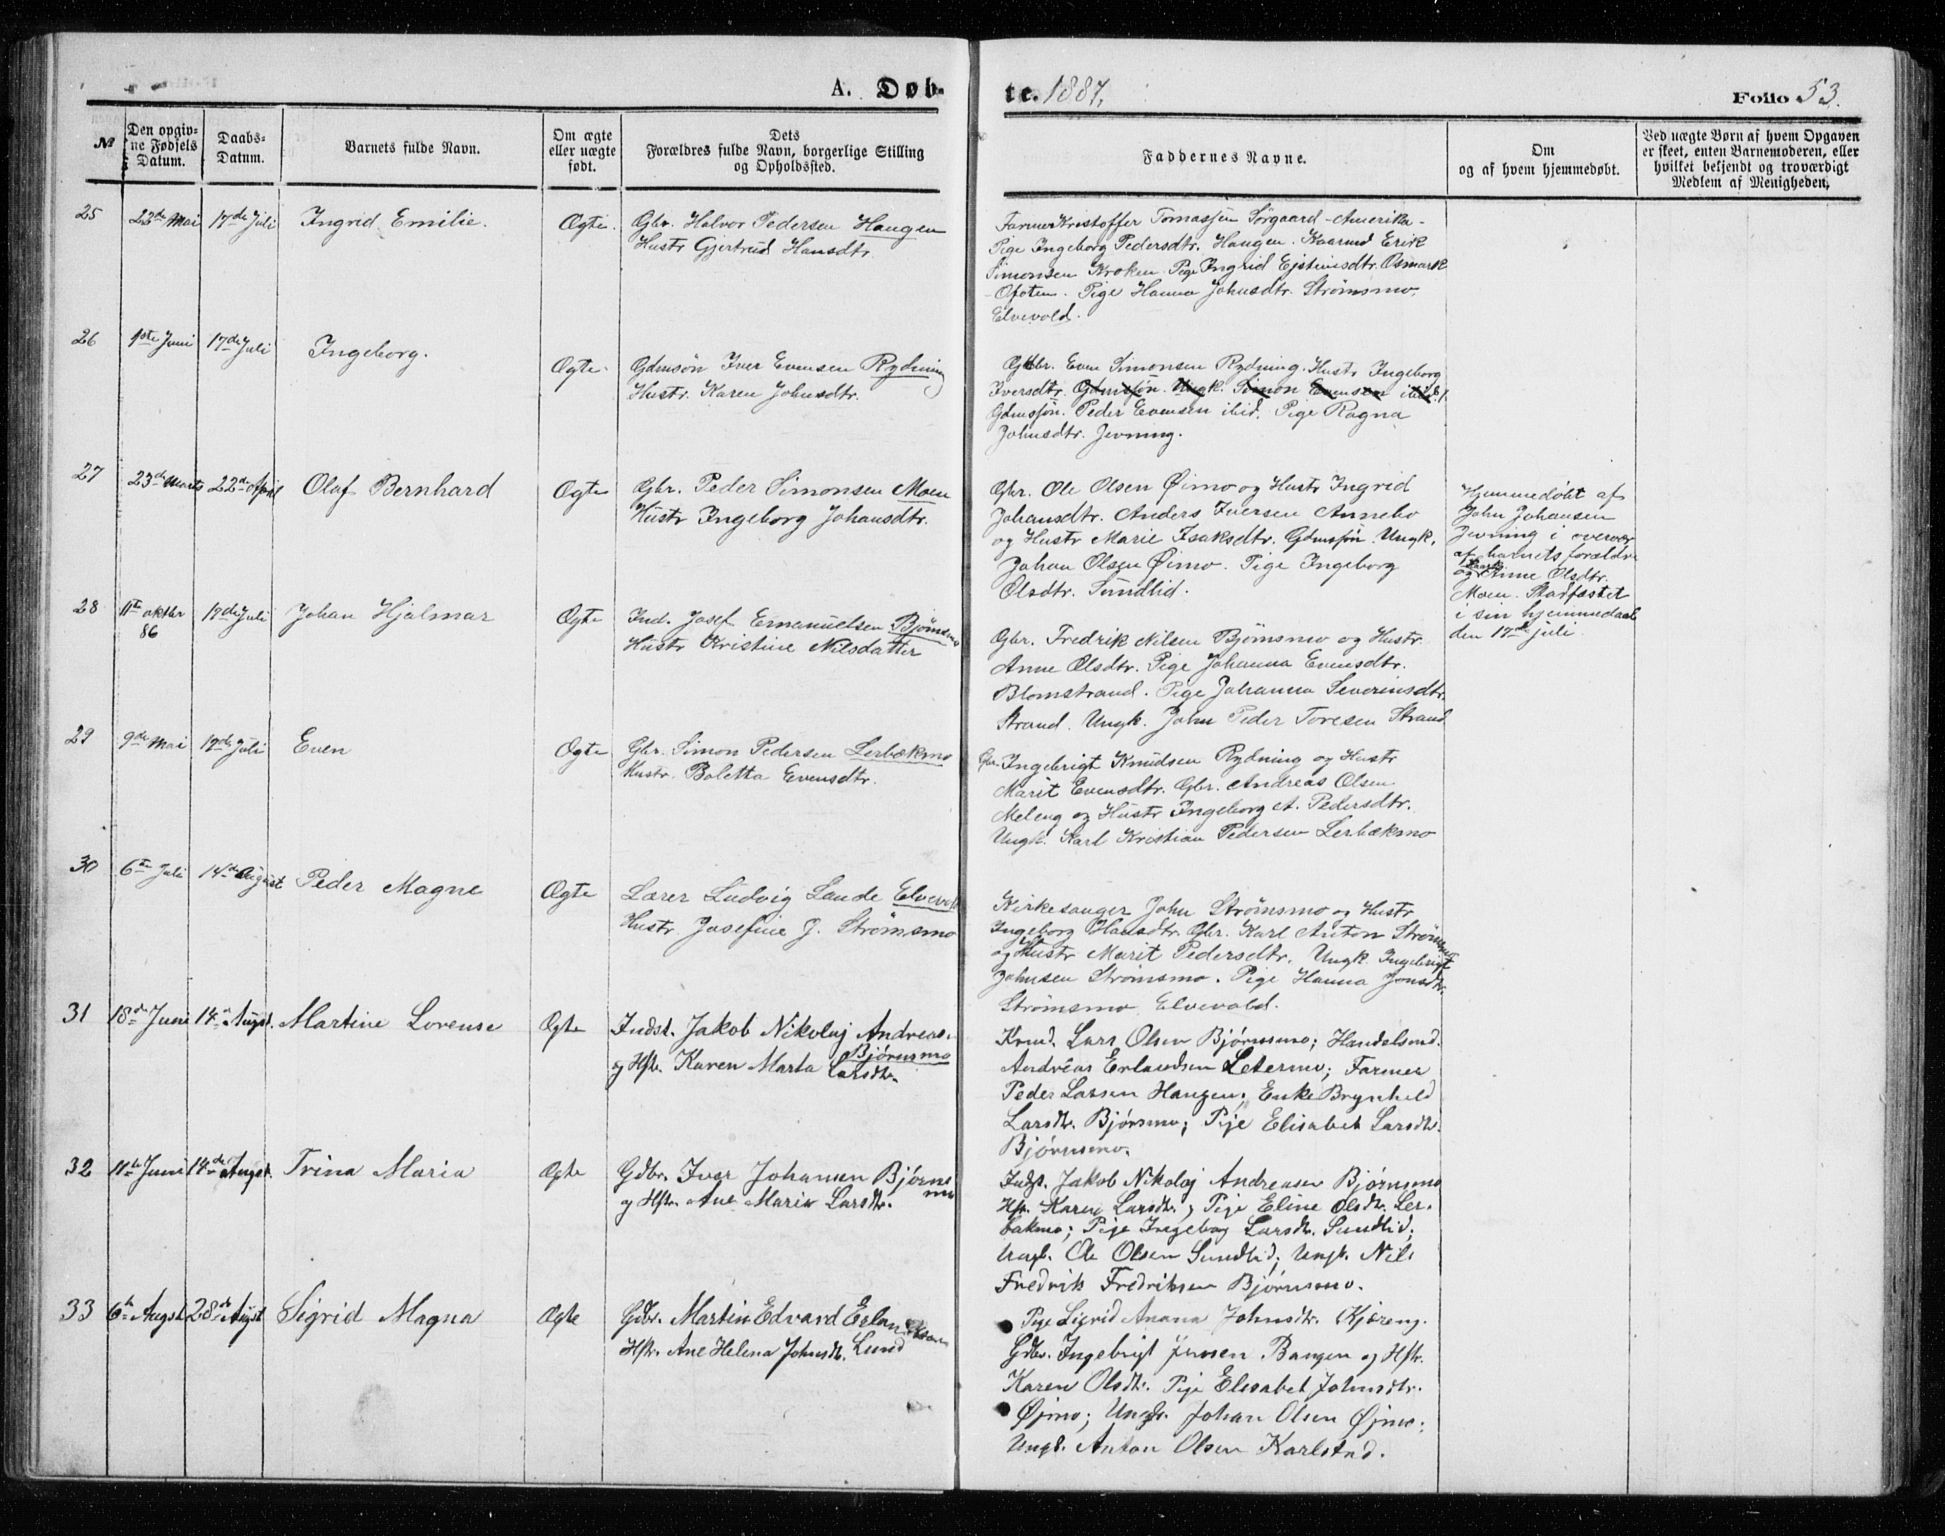 A. Døbte. 1887. Folio 53.
№
Den opgivne Fødsels Datum.
Daabs-Datum.
Barnets fulde Navn.
Om ægte eller uægte født.
Dets Forældres fulde Navn, borgerlige Stilling og Opholdssted.
Faddernes Navne.
Om og af hvem hjemmedøbt.
Ved uægte Børn af hvem Opgaven er skeet, enten Barnemoderen, eller hvilket bekjendt og troværdigt Medlem af Menigheden.
25 22de Mai 17de Juli Ingrid Emilie. Ægte. Gbr. Halvor Pedersen Haugen
Hustr Gjertrud Hansdtr
Farmer Kristoffer Tomassen Sørgaard - Amerika -
Pige Ingeborg Pedersdtr. Haugen. Kaarmd Erik
Simonsen Kroken. Pige Ingrid Ejstinsdtr. Osmark
- Ofoten. Pige Hanna Johnsdtr. Strømsmo,
Elvevold.
26 1ste Juni 17de Juli Ingeborg. Ægte. Gdmsøn Iver Evensen Rydning
Hustr. Karen Johnsdtr.
Gbr. Even Simonsen Rydning. Hustr Ingeborg
Iversdtr. Gdmssøn. Ungk. Simon Evensen ibid.
Gdmssøn. Peder Evensen ibid. Pige Ragna
Johnsdtr. Jevning.
27 23de Marts 22de April Olaf Bernhard Ægte Gbr. Peder Simonsen Moen
Hustr Ingeborg Johansdtr.
Gbr. Ole Olsen Øimo og Hustr Ingrid
Johansdtr. Anders Iversen Annebo
og Hustr Marie Isaksdtr. Gdmssøn. Ungk.
Johan Olsen Øimo. Pige Ingeborg
Olsdtr. Sundlid.
Hjemmedøbt af
John Johansen
Jevning i overvær
af barnets forældre
og Anne Olsdtr.
Moen. Stadfæstet
i sin hjemmedaab
den 17de juli.
28 11te oktbr 86 17de Juli Johan Hjalmar Ægte Ind. Josef Emanuelsen Bjørnsmo
Hustr Kristine Nilsdatter
Gbr. Fredrik Nilsen Bjørnsmo og Hustr
Anne Olsdtr. Pige Johanna Evensdtr.
Blomstrand. Pige Johanna Severinsdtr.
Strand. Ungk. John Peder Toresen Strand
29 9de Mai 17de Juli Even Ægte Gbr. Simon Pedersen Lerbækmo
Hustr. Boletta Evensdtr.
Gbr. Ingebrigt Knudsen Rydning og Hustr
Marit Evensdtr. Gbr. Andreas Olsen
Meleng og Hustr Ingeborg A. Pedersdtr.
Ungk. Karl Kristian Pedersen Lerbækmo
30 6te Juli 14de August Peder Magne Ægte Lærer Ludvig Lande Elvevold
Hustr. Josefine J. Strømsmo
Kirkesanger John Strømsmo og Hustr
Ingeborg Hansdtr. Gbr. Karl Anton Strømsmo
og Hustr Marit Pedersdtr. Ungk. Ingebrigt
Johnsen Strømsmo. Pige Hanna Jonsdtr.
Strømsmo Elvevold.
31 18de Juni 14de Augst. Martine Lovense Ægte Indst. Jakob Nikolaj Andreas. Bjørnsmo
og Hstr. Karen Marta Larsdtr.
Krmd. Lars Olsen Bjørnsmo; Handelsmd.
Andreas Erlandsen Setermo; Farmer
Peder Larsen Haugen; Enke Brynhild
Larsdtr. Bjørsmo; Pige Elisabet Larsdtr.
Bjørnsmo.
32 11te Juni 14de Augst. Trina Maria Ægte Gdbr. Iver Johansen Bjørnsmo
og Hstr. Ane Maria Larsdtr.
Indst. Jakob Nikolaj Andreasen Bjørnsmo
Hstr. Karen Larsdtr.; Pige Eline Olsdtr. Ler-
bakmo; Pige Ingebog Larsdtr. Sundlid;
Ungk. Ole Olsen Sundlid; Ungk. Nils
Fredrik Fredriksen Bjørnsmo.
33 6te Augst 28de Augst Sigrid Magna Ægte Gdbr. Martin Edvard Erlandsen
Hstr. Ane Helena Johnsdtr. Lund
Pige Sigrid Anana Johnsdtr. Kjæreng.
Gdbr. Ingebrigt Jensen Bangen og Hstr.
Karen Olsdtr. Pige Elisabet Johnsdtr.
Øjmo; Ungk. Johan Olsen Øjmo;
Ungk. Anton Olsen Karlstad.